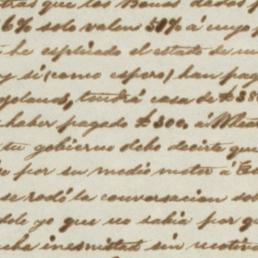 tras que los Bonos dados p
6% solo valen 50% á cuyo p
he esplicado el estado de
y si (como espero) han pag
tendrá casa de
haber pagado £300. á
tu gobierno debo decirte que
o por su medio meter á
se rodó la conversacion so
dole yo que no sabia por qu
cha inesmistad sin motiv